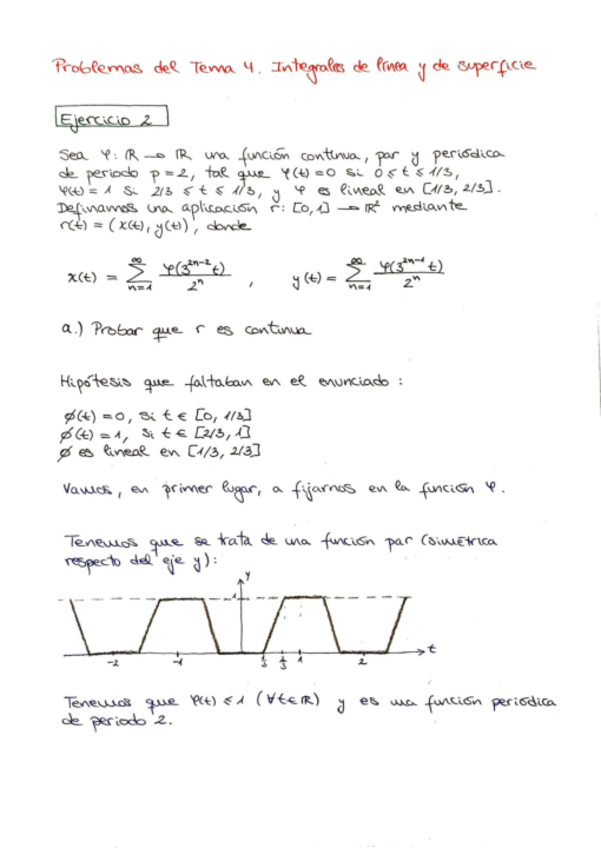 Problemas del Tema 4. Integrales de línea y de superficie
Ejercicio 2
Sea φ: ℝ → ℝ una función continua, par y periódica
de periodo p = 2, tal que φ(t) = 0 si 0 ≤ t ≤ 1/3,
φ(t) = 1 si 2/3 ≤ t ≤ 1/3, y φ es lineal en [1/3, 2/3].
Definamos una aplicación r: [0,1] → ℝ² mediante
r(t) = (x(t), y(t)), donde
x(t) = ∑_{n=1}^{∞} φ(3^{2n-2}t)/2^n , y(t) = ∑_{n=1}^{∞} φ(3^{2n-1}t)/2^n
a.) Probar que r es continua
Hipótesis que faltaban en el enunciado:
ϕ(t) = 0, si t ∈ [0, 1/3]
ϕ(t) = 1, si t ∈ [2/3, 1]
ϕ es lineal en [1/3, 2/3]
Vamos, en primer lugar, a fijarnos en la función φ.
Tenemos que se trata de una función par (simétrica
respecto del eje y):
y
1
t
-2 -1 1 2
Tenemos que φ(t) ≤ 1 (∀t∈ℝ) y es una función periódica
de periodo 2.